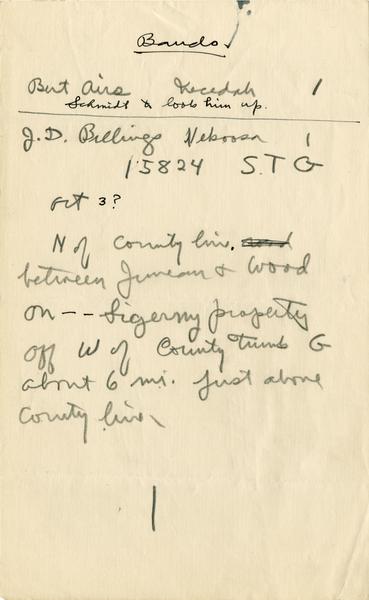 Bands
Bert Airs Necedah 1
Schmidt to look him up.
J. D. Billings Nekoosa 1
15824 S. T G
Oct 3?
N of County line,
between Juneau & Wood
on -- property
off W of County trunk G
about 6 mi. just above
County line
1